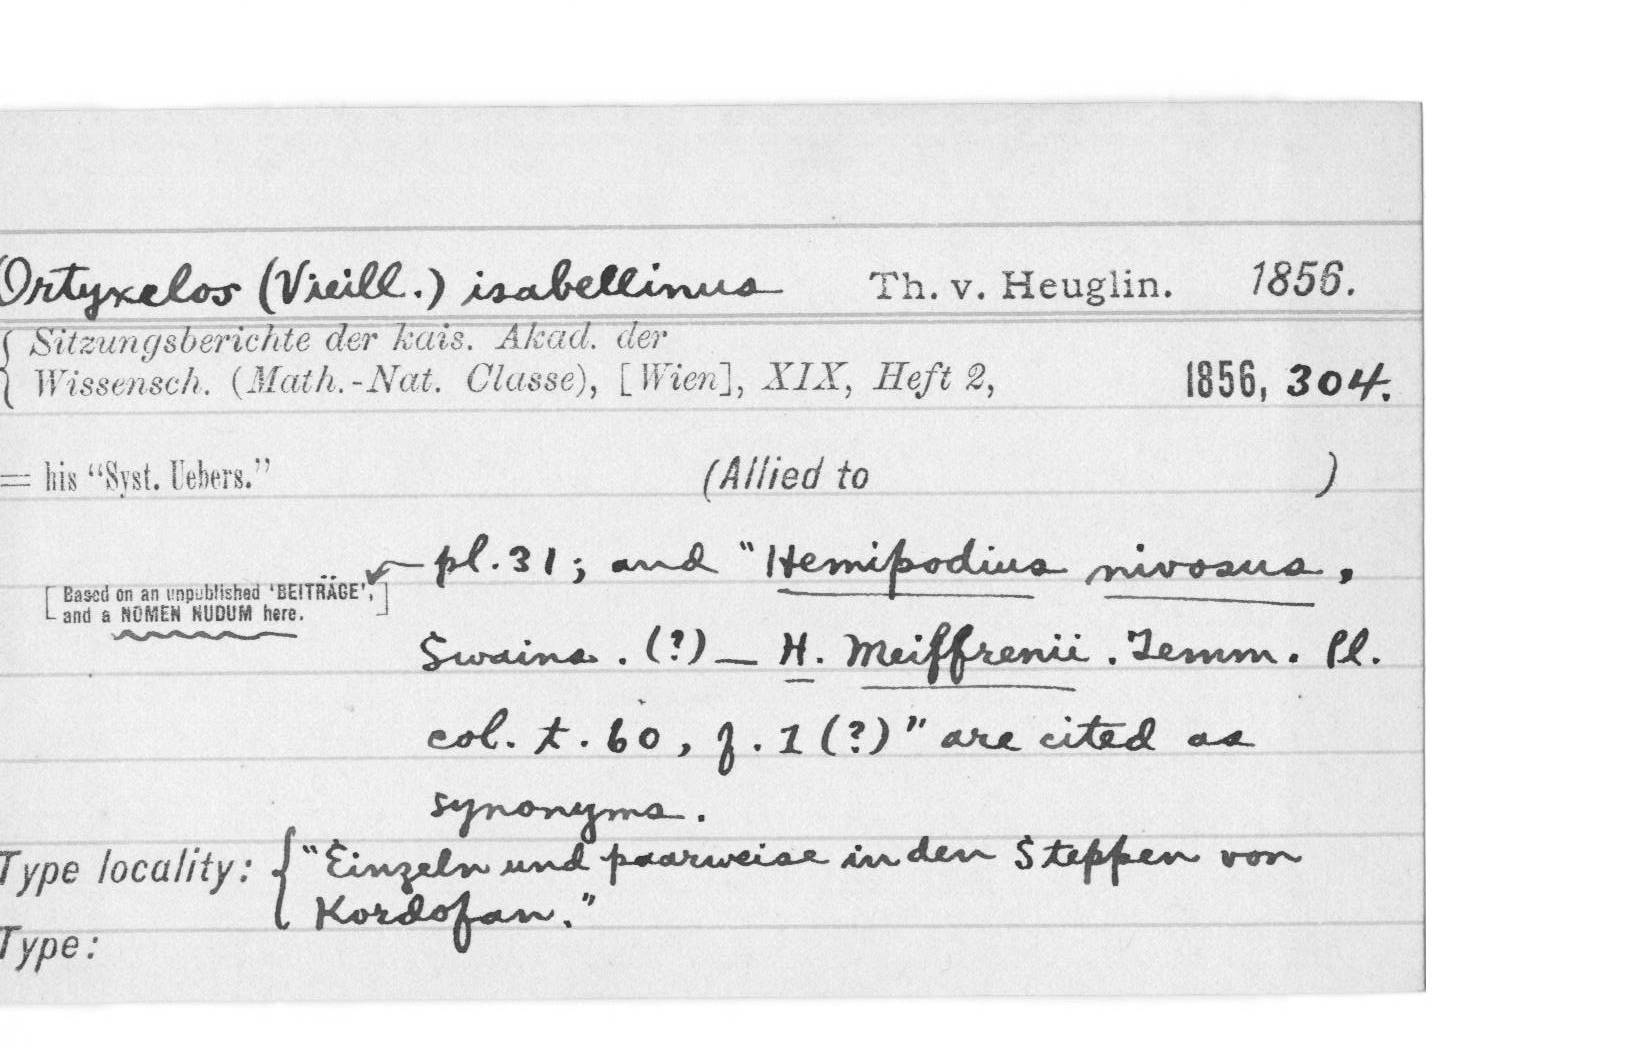 Ortyxelos (Vieill.) isabellinus Th. v. Heuglin. 1856.
Sitzungsberichte der kais. Akad. der
Wissensch. (Math.-Nat. Classe), [Wien], XIX, Heft 2, 1856, 304.
= his "Syst. Uebers." (Allied to )
pl. 31; and "Hemipodius nivosus,
[Based on an unpublished 'BEITRÄGE',
and a NOMEN NUDUM here.]
Swains. (?) — H. Meiffrenii. Temm. Pl.
col. t. 60, f. 1 (?)" are cited as
synonyms.
Type locality: { "Einzeln und paarweise in den Steppen von
Kordofan."
Type: